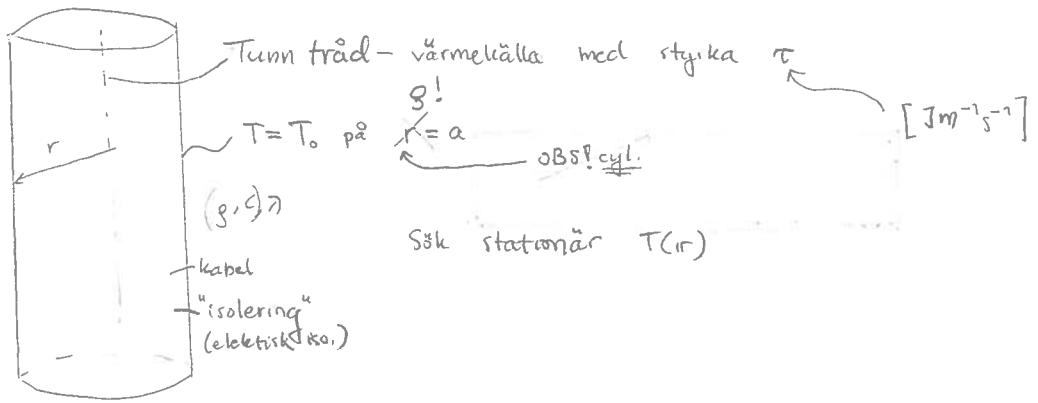 Tunn tråd – värmekälla med styrka τ
[Jm⁻¹s⁻¹]
ρ!
T=T₀ på r = a
OBS! cyl.
r
(ρ, c) λ
Sök stationär T(r)
kabel
"isolering"
(elektisk iso.)